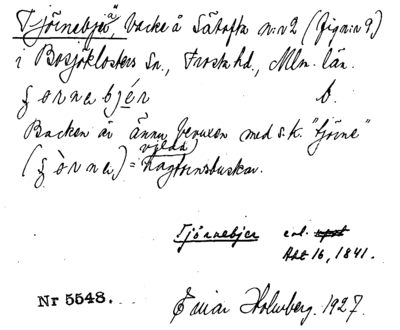 Tjörnebjer, backe å Sätofta n:r 2 (fig n:r 9,)
i Bosjöklosters Sn., Frosta hd., Mlm. län.
b.
Backen är ännu bevuxen med s.k. "tjörne"
vilda
= hagtornsbuskar.
Tjörnebjer enl.
Akt 16, 1841.
Nr 5548.
Einar Holmberg. 1927.